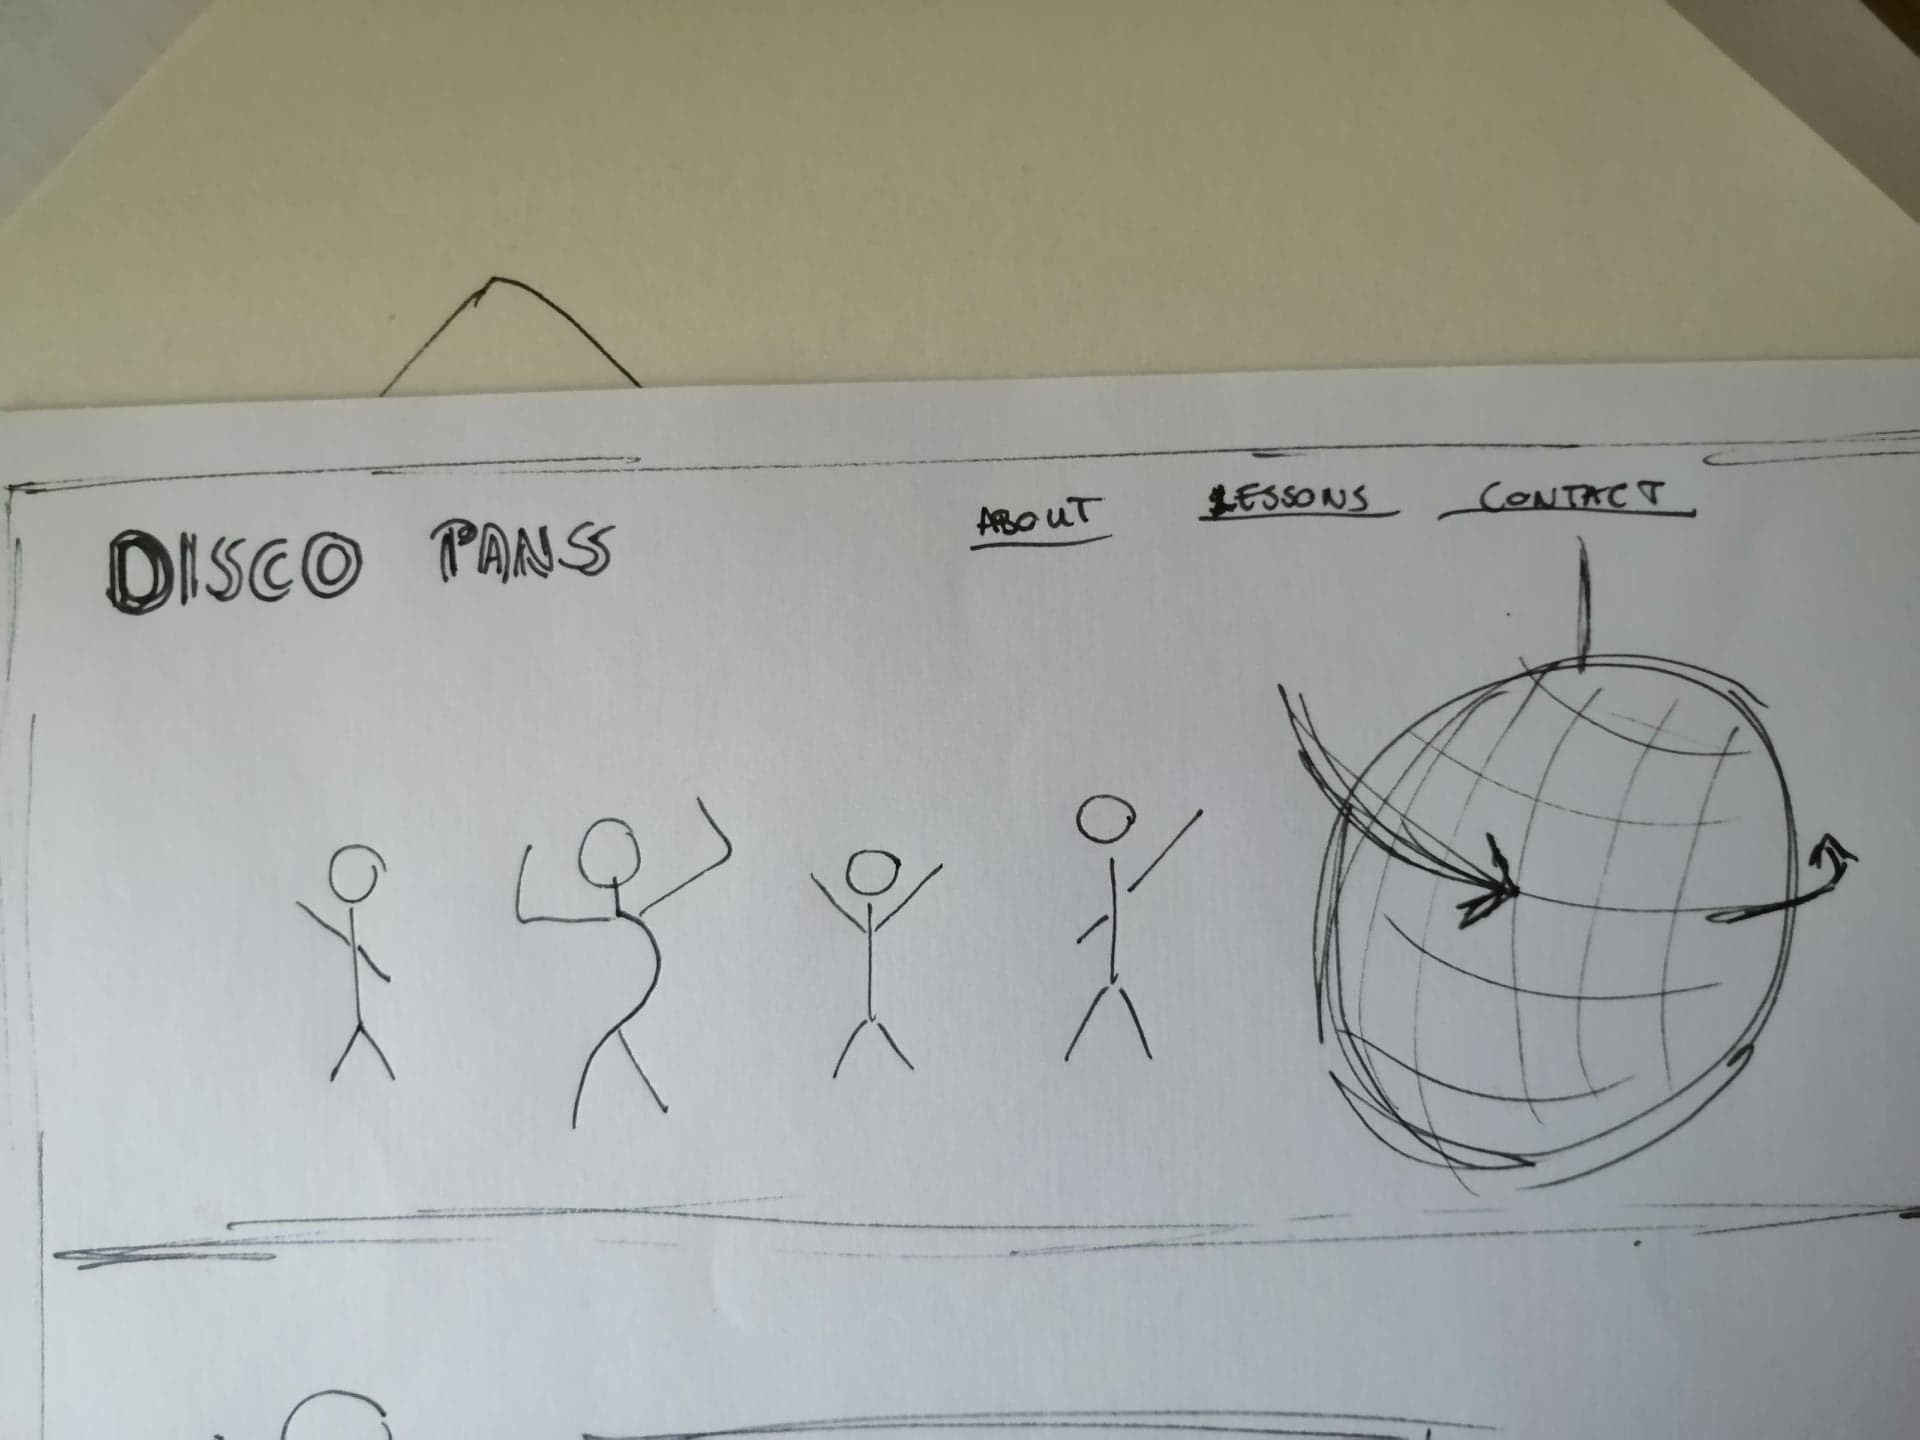 DISCO PANS
ABOUT LESSONS CONTACT